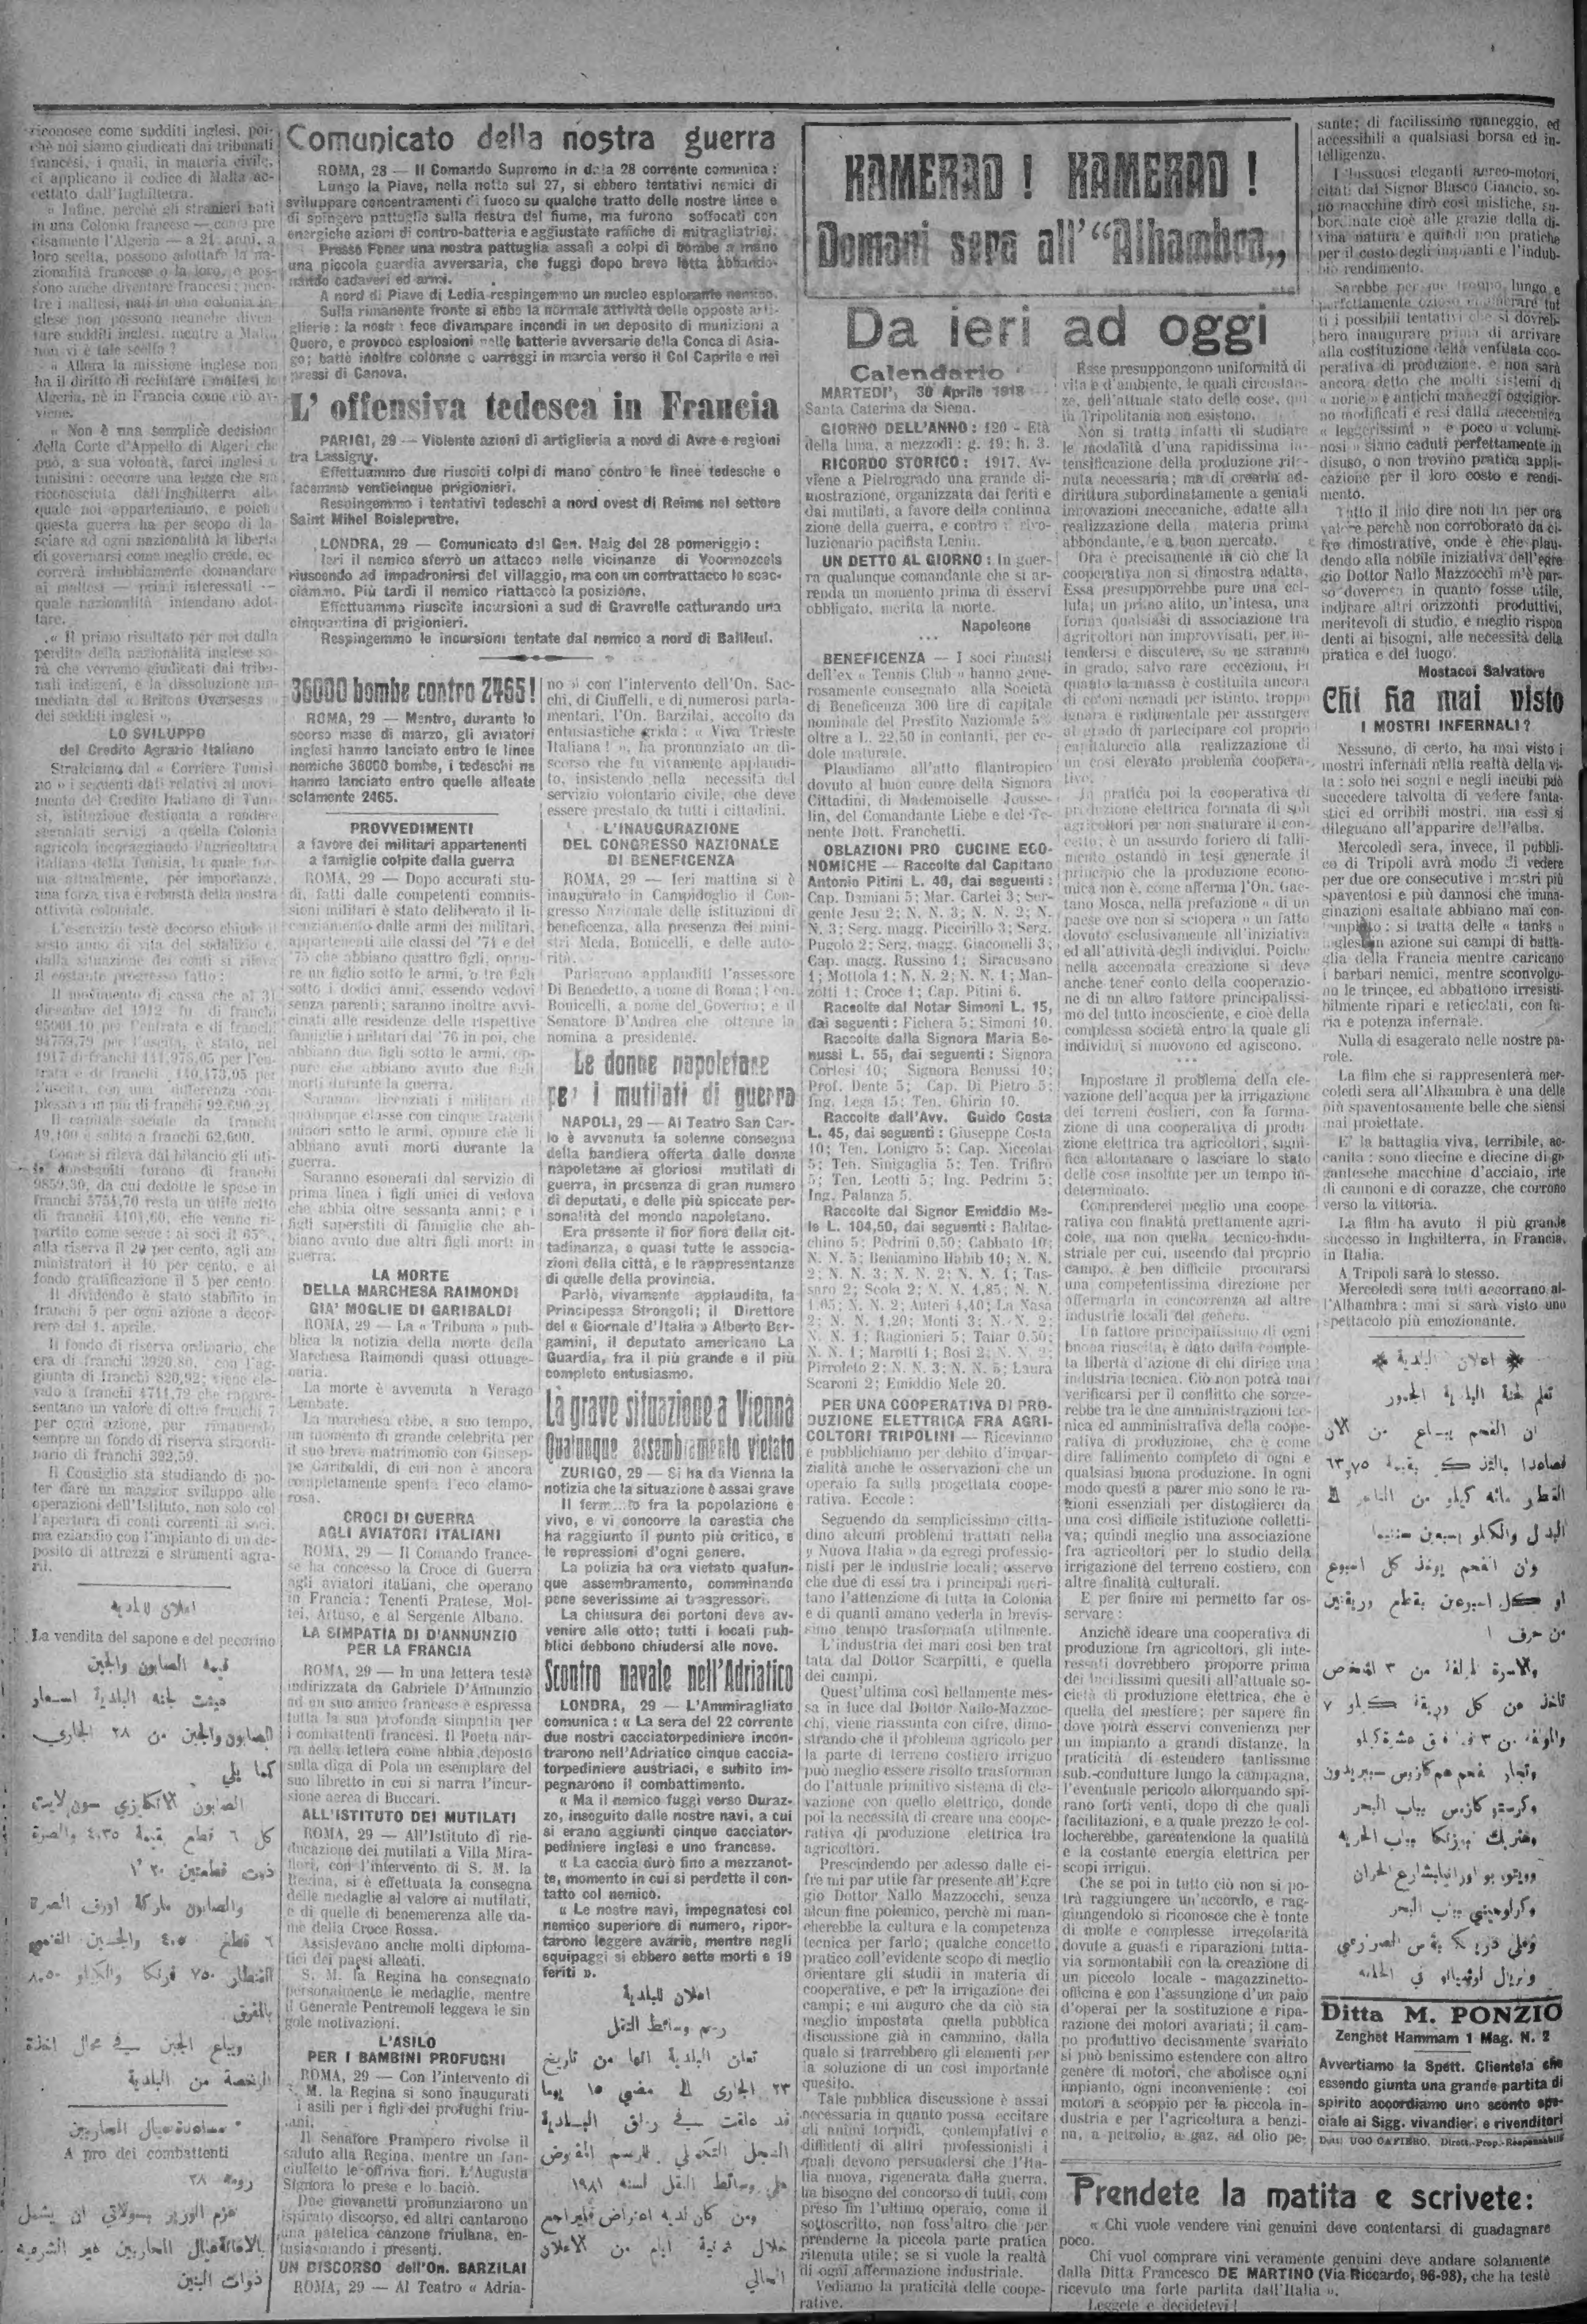 riconosce come sudditi inglesi, poi-
chè noi siamo giudicati dai tribunali
francesi, i quali, in materia civile,
ci applicano il codice di Malta ac-
cettato dall'Inghilterra.
« Infine, perchè gli stranieri nati
in una Colonia francese — come pre
cisamente l'Algeria — a 21 anni, a
loro scelta, possono adottare la na-
zionalità francese o la loro, o pos-
sono anche diventare francesi; men-
tre i maltesi, nati in una colonia in-
glese non possono neanche diven-
tare sudditi inglesi, mentre a
non vi è tale scelta?
« Allora la missione inglese non
ha il diritto di reclutare i maltesi in
Algeria, nè in Francia come ciò av-
viene.
« Non è una semplice decisione
della Corte d'Appello di Algeri che
può, a sua volontà, farci inglesi o
tunisini: occorre una legge che sia
riconosciuta dall'Inghilterra alla
quale noi apparteniamo, e poichè
questa guerra ha per scopo di la-
sciare ad ogni nazionalità la libertà
di governarsi come meglio crede, oc
correrà indubbiamente domandare
ai maltesi — primi interessati —
quale nazionalità intendano adot-
tare.
« Il primo risultato per noi dalla
perdita della nazionalità inglese sa-
rà che verremo giudicati dai tribu-
nali indigeni, e la dissoluzione im-
mediata del « Britons Overseas
dei sudditi inglesi ».
LO SVILUPPO
del Credito Agrario Italiano
Stralciamo dal « Corriere Tunisi
no » i seguenti dati relativi al movi-
mento del Credito Italiano di Tuni-
si, istituzione destinata a rendere
segnalati servigi a quella Colonia
agricola incoraggiando l'agricoltura
italiana della Tunisia, la quale for-
ma attualmente, per importanza,
una forza viva e robusta della nostra
attività coloniale.
L'esercizio testè decorso chiude il
sesto anno di vita del sodalizio e,
dalla situazione dei conti si rileva
il costante progresso fatto:
Il movimento di cassa che al 31
dicembre del 1912 fu di franchi
95001.10 per l'entrata e di franchi
94759,79 per l'uscita, è stato, nel
1917 di franchi 141,975,05 per l'en-
trata e di franchi 140,473,05 per
l'uscita, con una differenza com-
plessiva in più di franchi 92.690.21.
Il capitale sociale da franchi
49,100 è salito a franchi 62,600.
Come si rileva dal bilancio gli uti-
li conseguiti furono di franchi
9859,30, da cui dedotte le spese in
franchi 5751,70 resta un utile netto
di franchi 4101,60, che venne ri-
partito come segue: ai soci il 65%,
alla riserva il 20 per cento, agli am
ministratori il 10 per cento, e al
fondo gratificazione il 5 per cento.
Il dividendo è stato stabilito in
franchi 5 per ogni azione a decor-
rere dal 1. aprile.
Il fondo di riserva ordinario, che
era di franchi 3920,80, con l'ag-
giunta di franchi 820,92; viene ele-
vato a franchi 4741,72 che rappre-
sentano un valore di oltre franchi 7
per ogni azione, pur rimanendo
sempre un fondo di riserva straordi-
nario di franchi 392,59.
Il Consiglio sta studiando di po-
ter dare un maggior sviluppo alle
operazioni dell'Istituto, non solo col
l'apertura di conti correnti ai soci,
ma eziandio con l'impianto di un de-
posito di attrezzi e strumenti agra-
ri.
اعلان للبلدية
La vendita del sapone e del pecorino
قيمة الصابون والجبن
عينت لجنة البلدية اسعار
الصابون والجبن من ٢٨ الجاري
كما يلي
الصابون الانكليزي سون لايت
كل ٦ قطع بقيمة ٤،٣٥ والصرة
ذوت قطعتين
والصابون ماركة اورف الصرة
بالمفرق
ويباع الجبن في محال اخذة
الرخصة من البلدية
مساعدة عيال المحاربين
A pro dei combattenti
رومة ٢٨
عزم الوزير بسولاتي ان يشمل
بالاغاثة عيال المحاربين غير الشرعية
ذوات البنين
Comunicato della nostra guerra
ROMA, 28 — Il Comando Supremo in data 28 corrente comunica:
Lungo la Piave, nella notte sul 27, si ebbero tentativi nemici di
sviluppare concentramenti di fuoco su qualche tratto delle nostre linee e
di spingere pattuglie sulla destra del fiume, ma furono soffocati con
energiche azioni di contro-batteria e aggiustate raffiche di mitragliatrici.
Presso Fener una nostra pattuglia assalì a colpi di bombe a mano
una piccola guardia avversaria, che fuggì dopo breve lotta abbando-
nando cadaveri ed armi.
A nord di Piave di Ledia respingemmo un nucleo esplorante nemico.
Sulla rimanente fronte si ebbe la normale attività delle opposte arti-
glierie: la nostra fece divampare incendi in un deposito di munizioni a
Quero, e provocò esplosioni nelle batterie avversarie della Conca di Asia-
go; battè inoltre colonne e carreggi in marcia verso il Col Caprile e nei
pressi di Canova.
L' offensiva tedesca in Francia
PARIGI, 29 — Violente azioni di artiglieria a nord di Avre e regioni
tra Lassigny.
Effettuammo due riusciti colpi di mano contro le linee tedesche e
facemmo venticinque prigionieri.
Respingemmo i tentativi tedeschi a nord ovest di Reims nel settore
Saint Mihel Boislepretre.
LONDRA, 29 — Comunicato del Gen. Haig del 28 pomeriggio:
Ieri il nemico sferrò un attacco nelle vicinanze di Voormozeels
riuscendo ad impadronirsi del villaggio, ma con un contrattacco lo scac-
ciammo. Più tardi il nemico riattaccò la posizione.
Effettuammo riuscite incursioni a sud di Gravrelle catturando una
cinquantina di prigionieri.
Respingemmo le incursioni tentate dal nemico a nord di Bailleul.
36000 bombe contro 2465!
ROMA, 29 — Mentre, durante lo
scorso mese di marzo, gli aviatori
inglesi hanno lanciato entro le linee
nemiche 36000 bombe, i tedeschi ne
hanno lanciato entro quelle alleate
solamente 2465.
PROVVEDIMENTI
a favore dei militari appartenenti
a famiglie colpite dalla guerra
ROMA, 29 — Dopo accurati stu-
di, fatti dalle competenti commis-
sioni militari è stato deliberato il li-
cenziamento dalle armi dei militari,
appartenenti alle classi del '74 e del
'75 che abbiano quattro figli, oppu-
re un figlio sotto le armi, o tre figli
sotto i dodici anni, essendo vedovi
senza parenti; saranno inoltre avvi-
cinati alle residenze delle rispettive
famiglie i militari dal '76 in poi, che
abbiano due figli sotto le armi, op-
pure che abbiano avuto due figli
morti durante la guerra.
Saranno licenziati i militari di
qualunque classe con cinque fratelli
minori sotto le armi, oppure che li
abbiano avuti morti durante la
guerra.
Saranno esonerati dal servizio di
prima linea i figli unici di vedova
che abbia oltre sessanta anni; e i
figli superstiti di famiglie che ab-
biano avuto due altri figli morti in
guerra.
LA MORTE
DELLA MARCHESA RAIMONDI
GIA' MOGLIE DI GARIBALDI
ROMA, 29 — La « Tribuna » pub-
blica la notizia della morte della
Marchesa Raimondi quasi ottuage-
naria.
La morte è avvenuta a Verago
Lembate.
La marchesa ebbe, a suo tempo,
un momento di grande celebrità per
il suo breve matrimonio con Giusep-
pe Garibaldi, di cui non è ancora
completamente spenta l'eco clamo-
rosa.
CROCI DI GUERRA
AGLI AVIATORI ITALIANI
ROMA, 29 — Il Comando france-
se ha concesso la Croce di Guerra
agli aviatori italiani, che operano
in Francia: Tenenti Pratese, Mol-
tei, Artuso, e al Sergente Albano.
LA SIMPATIA DI D'ANNUNZIO
PER LA FRANCIA
ROMA, 29 — In una lettera testè
indirizzata da Gabriele D'Annunzio
ad un suo amico francese è espressa
tutta la sua profonda simpatia per
i combattenti francesi. Il Poeta nar-
ra nella lettera come abbia deposto
sulla diga di Pola un esemplare del
suo libretto in cui si narra l'incur-
sione aerea di Buccari.
ALL'ISTITUTO DEI MUTILATI
ROMA, 29 — All'Istituto di rie-
ducazione dei mutilati a Villa Mira-
fiori, con l'intervento di S. M. la
Regina, si è effettuata la consegna
delle medaglie al valore ai mutilati,
e di quelle di benemerenza alle da-
me della Croce Rossa.
Assistevano anche molti diploma-
tici dei paesi alleati.
S. M. la Regina ha consegnato
personalmente le medaglie, mentre
il Generale Pentremoli leggeva le sin
gole motivazioni.
L'ASILO
PER I BAMBINI PROFUGHI
ROMA, 29 — Con l'intervento di
S. M. la Regina si sono inaugurati
i asili per i figli dei profughi friu-
lani.
Il Senatore Prampero rivolse il
saluto alla Regina, mentre un fan-
ciulletto le offriva fiori. L'Augusta
Signora lo prese e lo baciò.
Due giovanetti pronunziarono un
ispirato discorso, ed altri cantarono
una patetica canzone friulana, en-
tusiasmando i presenti.
UN DISCORSO dell'On. BARZILAI
ROMA, 29 — Al Teatro « Adria-
no » con l'intervento dell'On. Sac-
chi, di Ciuffelli, e di numerosi parla-
mentari, l'On. Barzilai, accolto da
entusiastiche grida: « Viva Trieste
Italiana! », ha pronunziato un di-
scorso che fu vivamente applaudi-
to, insistendo nella necessità del
servizio volontario civile, che deve
essere prestato da tutti i cittadini.
L'INAUGURAZIONE
DEL CONGRESSO NAZIONALE
DI BENEFICENZA
ROMA, 29 — Ieri mattina si è
inaugurato in Campidoglio il Con-
gresso Nazionale delle istituzioni di
beneficenza, alla presenza dei mini-
stri Meda, Bonicelli, e delle auto-
rità.
Parlarono applauditi l'assessore
Di Benedetto, a nome di Roma; l'on.
Bonicelli, a nome del Governo; e il
Senatore D'Andrea che ottenne la
nomina a presidente.
Le donne napoletane
pe' i mutilati di guerra
NAPOLI, 29 — Al Teatro San Car-
lo è avvenuta la solenne consegna
della bandiera offerta dalle donne
napoletane ai gloriosi mutilati di
guerra, in presenza di gran numero
di deputati, e delle più spiccate per-
sonalità del mondo napoletano.
Era presente il fior fiore della cit-
tadinanza, e quasi tutte le associa-
zioni della città, e le rappresentanze
di quelle della provincia.
Parlò, vivamente applaudita, la
Principessa Strongoli; il Direttore
del « Giornale d'Italia » Alberto Ber-
gamini, il deputato americano La
Guardia, fra il più grande e il più
completo entusiasmo.
La grave situazione a Vienna
Qualunque assembramento vietato
ZURIGO, 29 — Si ha da Vienna la
notizia che la situazione è assai grave
Il fermento fra la popolazione è
vivo, e vi concorre la carestia che
ha raggiunto il punto più critico, e
le repressioni d'ogni genere.
La polizia ha ora vietato qualun-
que assembramento, comminando
pene severissime ai trasgressori.
La chiusura dei portoni deve av-
venire alle otto; tutti i locali pub-
blici debbono chiudersi alle nove.
Scontro navale nell'Adriatico
LONDRA, 29 — L'Ammiragliato
comunica: « La sera del 22 corrente
due nostri cacciatorpediniere incon-
trarono nell'Adriatico cinque caccia-
torpediniere austriaci, e subito im-
pegnarono il combattimento.
« Ma il nemico fuggì verso Duraz-
zo, inseguito dalle nostre navi, a cui
si erano aggiunti cinque cacciator-
pediniere inglesi e uno francese.
« La caccia durò fino a mezzanot-
te, momento in cui si perdette il con-
tatto col nemico.
« Le nostre navi, impegnatesi col
nemico superiore di numero, ripor-
tarono leggere avarie, mentre negli
equipaggi si ebbero sette morti e 19
feriti ».
اعلان للبلدية
رسم وسائط النقل
تعلن البلدية انها من تاريخ
٢٣ الجاري الى مضي ١٥ يوما
قد علقت في رواق البلدية
السجل التكميلي للرسم المفروض
على وسائط النقل لسنه ١٩١٨
ومن كان لديه اعتراض فليراجع
خلال ثمانية ايام من الاعلان
الحالي
KAMERAD! KAMERAD!
Domani sera all'"Alhambra„
Da ieri ad oggi
Calendario
MARTEDI', 30 Aprile 1918
Santa Caterina da Siena.
GIORNO DELL'ANNO: 120 - Età
della luna, a mezzodì: g. 19; h. 3.
RICORDO STORICO: 1917. Av-
viene a Pietrogrado una grande di-
mostrazione, organizzata dai feriti e
dai mutilati, a favore della continua
zione della guerra, e contro il rivo-
luzionario pacifista Lenin.
UN DETTO AL GIORNO: In guer-
ra qualunque comandante che si ar-
renda un momento prima di esservi
obbligato, merita la morte.
Napoleone
...
BENEFICENZA — I soci rimasti
dell'ex « Tennis Club » hanno gene-
rosamente consegnato alla Società
di Beneficenza 300 lire di capitale
nominale del Prestito Nazionale 5%
oltre a L. 22,50 in contanti, per ce-
dole maturate.
Plaudiamo all'atto filantropico
dovuto al buon cuore della Signora
Cittadini, di Mademoiselle Jousse-
lin, del Comandante Liebe e del Te-
nente Dott. Franchetti.
OBLAZIONI PRO CUCINE ECO-
NOMICHE — Raccolte dal Capitano
Antonio Pitini L. 40, dai seguenti:
Cap. Damiani 5; Mar. Cartei 3; Ser-
gente Jesu 2; N. N. 3; N. N. 2; N.
N. 3; Serg. magg. Piccirillo 3; Serg.
Pugolo 2; Serg. magg. Giacomelli 3;
Cap. magg. Russino 1; Siracusano
1; Mottola 1; N. N. 2; N. N. 1; Man-
zotti 1; Croce 1; Cap. Pitini 6.
Raccolte dal Notar Simoni L. 15,
dai seguenti: Fichera 5; Simoni 10.
Raccolte dalla Signora Maria Be-
nussi L. 55, dai seguenti: Signora
Cortesi 10; Signora Benussi 10;
Prof. Dente 5; Cap. Di Pietro 5;
Ing. Lega 15; Ten. Ghirin 10.
Raccolte dall'Avv. Guido Costa
L. 45, dai seguenti: Giuseppe Costa
10; Ten. Lonigro 5; Cap. Niccolai
5; Ten. Sinigaglia 5; Ten. Trifirò
5; Ten. Leotti 5; Ing. Pedrini 5;
Ing. Palanza 5.
Raccolte dal Signor Emiddio Me-
le L. 104,50, dai seguenti: Baldac-
chino 5; Pedrini 0,50; Gabbato 10;
N. N. 5; Beniamino Habib 10; N. N.
2; N. N. 3; N. N. 2; N. N. 1; Tas-
saro 2; Scola 2; N. N. 1,85; N. N.
1,05; N. N. 2; Auteri 4,40; La Nasa
2; N. N. 1,20; Monti 3; N. N. 2;
N. N. 1; Ragionieri 5; Taiar 0,50;
N. N. 1; Marotti 1; Rosi 2; N. N. 2;
Pirroleto 2; N. N. 3; N. N. 5; Laura
Scaroni 2; Emiddio Mele 20.
PER UNA COOPERATIVA DI PRO-
DUZIONE ELETTRICA FRA AGRI-
COLTORI TRIPOLINI — Riceviamo
e pubblichiamo per debito d'impar-
zialità anche le osservazioni che un
operaio fa sulla progettata coope-
rativa. Eccole:
Seguendo da semplicissimo citta-
dino alcuni problemi trattati nella
« Nuova Italia » da egregi professio-
nisti per le industrie locali; osservo
che due di essi tra i principali meri-
tano l'attenzione di tutta la Colonia
e di quanti amano vederla in brevis-
simo tempo trasformata utilmente.
L'industria dei mari così ben trat
tata dal Dottor Scarpitti, e quella
dei campi.
Quest'ultima così bellamente mes-
sa in luce dal Dottor Nallo-Mazzoc-
chi, viene riassunta con cifre, dimo-
strando che il problema agricolo per
la parte di terreno costiero irriguo
può meglio essere risolto trasforman
do l'attuale primitivo sistema di ele-
vazione con quello elettrico, donde
poi la necessità di creare una coope-
rativa di produzione elettrica tra
agricoltori.
Prescindendo per adesso dalle ci-
fre mi par utile far presente all'Egre
gio Dottor Nallo Mazzocchi, senza
alcun fine polemico, perchè mi man-
cherebbe la cultura e la competenza
tecnica per farlo; qualche concetto
pratico coll'evidente scopo di meglio
orientare gli studii in materia di
cooperative, e per la irrigazione dei
campi; e mi auguro che da ciò sia
meglio impostata quella pubblica
discussione già in cammino, dalla
quale si trarrebbero gli elementi per
la soluzione di un così importante
quesito.
Tale pubblica discussione è assai
necessaria in quanto possa eccitare
gli animi torpidi, contemplativi e
diffidenti di altri professionisti i
quali devono persuadersi che l'Ita-
lia nuova, rigenerata dalla guerra,
ha bisogno del concorso di tutti, com
preso fin l'ultimo operaio, come il
sottoscritto, non foss'altro che per
prenderne la piccola parte pratica
ritenuta utile; se si vuole la realtà
di ogni affermazione industriale.
Vediamo la praticità delle coope-
rative.
Esse presuppongono uniformità di
vita e d'ambiente, le quali circostan-
ze, nell'attuale stato delle cose, qui
in Tripolitania non esistono.
Non si tratta infatti di studiare
le modalità d'una rapidissima in-
tensificazione della produzione rite-
nuta necessaria; ma di crearla ad-
dirittura subordinatamente a geniali
innovazioni meccaniche, adatte alla
realizzazione della materia prima
abbondante, e a buon mercato.
Ora è precisamente in ciò che la
cooperativa non si dimostra adatta.
Essa presupporrebbe pure una cel-
lula; un primo alito, un'intesa, una
forma qualsiasi di associazione tra
agricoltori non improvvisati, per in-
tendersi e discutere, se ne saranno
in grado, salvo rare eccezioni, in
quanto la massa è costituita ancora
di coloni nomadi per istinto, troppo
ignara e rudimentale per assurgere
al grado di partecipare col proprio
capitaluccio alla realizzazione di
un così elevato problema coopera-
tivo.
In pratica poi la cooperativa di
produzione elettrica formata di soli
agricoltori per non snaturare il con-
cetto, è un assurdo foriero di falli-
mento ostando in tesi generale il
principio che la produzione econo-
mica non è, come afferma l'On. Gae-
tano Mosca, nella prefazione « di un
paese ove non si sciopera » un fatto
dovuto esclusivamente all'iniziativa
ed all'attività degli individui. Poichè
nella accennata creazione si deve
anche tener conto della cooperazio-
ne di un altro fattore principalissi-
mo del tutto incosciente, e cioè della
complessa società entro la quale gli
individui si muovono ed agiscono.
...
Impostare il problema della ele-
vazione dell'acqua per la irrigazione
dei terreni costieri, con la forma-
zione di una cooperativa di produ
zione elettrica tra agricoltori, signi-
fica allontanare o lasciare lo stato
delle cose insolute per un tempo in-
determinato.
Comprenderei meglio una coope-
rativa con finalità prettamente agri-
cole, ma non quella tecnico-indu-
striale per cui, uscendo dal proprio
campo, è ben difficile procurarsi
una competentissima direzione per
affermarla in concorrenza ad altre
industrie locali del genere.
Un fattore principalissimo di ogni
buona riuscita, è dato dalla comple-
ta libertà d'azione di chi dirige una
industria tecnica. Ciò non potrà mai
verificarsi per il conflitto che sorge-
rebbe tra le due amministrazioni tec-
nica ed amministrativa della coope-
rativa di produzione, che è come
dire fallimento completo di ogni e
qualsiasi buona produzione. In ogni
modo questi a parer mio sono le ra-
gioni essenziali per distoglierci da
una così difficile istituzione colletti-
va; quindi meglio una associazione
fra agricoltori per lo studio della
irrigazione del terreno costiero, con
altre finalità culturali.
E per finire mi permetto far os-
servare:
Anzichè ideare una cooperativa di
produzione fra agricoltori, gli inte-
ressati dovrebbero proporre prima
dei lucidissimi quesiti all'attuale so-
cietà di produzione elettrica, che è
quella del mestiere; per sapere fin
dove potrà esservi convenienza per
un impianto a grandi distanze, la
praticità di estendere tantissime
sub.-condutture lungo la campagna,
l'eventuale pericolo allorquando spi-
rano forti venti, dopo di che quali
facilitazioni, e a quale prezzo le col-
locherebbe, garentendone la qualità
e la costante energia elettrica per
scopi irrigui.
Che se poi in tutto ciò non si po-
trà raggiungere un'accordo, e rag-
giungendolo si riconosce che è fonte
di molte e complesse irregolarità
dovute a guasti e riparazioni tutta-
via sormontabili con la creazione di
un piccolo locale - magazzinetto-
officina e con l'assunzione d'un paio
d'operai per la sostituzione e ripa-
razione dei motori avariati; il cam-
po produttivo decisamente svariato
si può benissimo estendere con altro
genere di motori, che abolisce ogni
impianto, ogni inconveniente: coi
motori a scoppio per la piccola in-
dustria e per l'agricoltura a benzi-
na, a petrolio, a gaz, ad olio pe-
sante; di facilissimo maneggio, ed
accessibili a qualsiasi borsa ed in-
telligenza.
I lussuosi eleganti aereo-motori,
citati dal Signor Blasco Ciancio, so-
no macchine dirò così mistiche, su-
bordinate cioè alle grazie della di-
vina natura e quindi non pratiche
per il costo degli impianti e l'indub-
bio rendimento.
Sarebbe per me troppo lungo e
perfettamente ozioso enumerare tut
ti i possibili tentativi che si dovreb-
bero inaugurare prima di arrivare
alla costituzione della ventilata coo-
perativa di produzione, e non sarà
ancora detto che molti sistemi di
« norie » e antichi maneggi oggigior-
no modificati e resi dalla meccanica
« leggerissimi » e poco « volumi-
nosi » siano caduti perfettamente in
disuso, o non trovino pratica appli-
cazione per il loro costo e rendi-
mento.
Tutto il mio dire non ha per ora
valore perchè non corroborato da ci-
fre dimostrative, onde è che plau-
dendo alla nobile iniziativa dell'egre
gio Dottor Nallo Mazzocchi m'è par-
so doveroso in quanto fosse utile,
indicare altri orizzonti produttivi,
meritevoli di studio, e meglio rispon
denti ai bisogni, alle necessità della
pratica e del luogo.
Mostacci Salvatore
Chi ha mai visto
I MOSTRI INFERNALI?
Nessuno, di certo, ha mai visto i
mostri infernali nella realtà della vi-
ta: solo nei sogni e negli incubi può
succedere talvolta di vedere fanta-
stici ed orribili mostri, ma essi si
dileguano all'apparire dell'alba.
Mercoledì sera, invece, il pubbli-
co di Tripoli avrà modo di vedere
per due ore consecutive i mostri più
spaventosi e più dannosi che imma-
ginazioni esaltate abbiano mai con-
cepito: si tratta delle « tanks »
inglesi in azione sui campi di batta-
glia della Francia mentre caricano
i barbari nemici, mentre sconvolgo-
no le trincee, ed abbattono irresisti-
bilmente ripari e reticolati, con fu-
ria e potenza infernale.
Nulla di esagerato nelle nostre pa-
role.
La film che si rappresenterà mer-
coledì sera all'Alhambra è una delle
più spaventosamente belle che siensi
mai proiettate.
E' la battaglia viva, terribile, ac-
canita: sono diecine e diecine di gi-
gantesche macchine d'acciaio, irte
di cannoni e di corazze, che corrono
verso la vittoria.
La film ha avuto il più grande
successo in Inghilterra, in Francia,
in Italia.
A Tripoli sarà lo stesso.
Mercoledì sera tutti accorrano al-
l'Alhambra: mai si sarà visto uno
spettacolo più emozionante.
* اعلان البلدية *
تعلم لجنة البلدية الجمهور
ان الفحم يباع من الآن
فصاعدا بالتذاكر بقيمة ٦٣،٧٥
القنطار مائة كيلو من التاجر الى
البدال والكيلو بسبعين سنتيما
وان الفحم يوخذ كل اسبوع
او كل اسبوعين بقطع وريقتين
من حرف ا
والاسرة المؤلفة من ٣ اشخاص
تاخذ من كل وريقة كيلو ٧
وتجار الفحم هم كازيس سبيريدون
بباب البحر
بباب الحرية
بباب البحر
Ditta M. PONZIO
Zenghet Hammam 1 Mag. N. 2
Avvertiamo la Spett. Clientela che
essendo giunta una grande partita di
spirito accordiamo uno sconto spe-
ciale ai Sigg. vivandieri e rivenditori
Dott. UGO CAFIERO, Dirett.-Prop.-Responsabile
Prendete la matita e scrivete:
« Chi vuole vendere vini genuini deve contentarsi di guadagnare
poco.
Chi vuol comprare vini veramente genuini deve andare solamente
dalla Ditta Francesco DE MARTINO (Via Riccardo, 96-98), che ha testè
ricevuto una forte partita dall'Italia ».
Leggete e decidetevi!